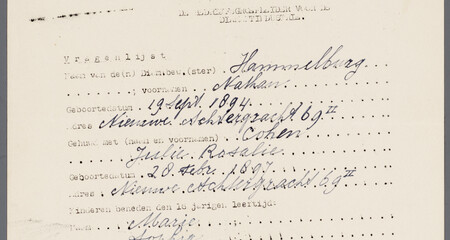 Vragenlijst
Naam van de(n) Diam.bew.(ster) . Hammelburg
. . . . . . ; voornamen . Nathan
Geboortedatum . 19 Sept. 1894
Adres Nieuwe Achtergracht 69 II
Gehuwd met (naam en voornamen) . Cohen
Julie Rosalie
Geboortedatum . 28 Febr. 1897
Adres . Nieuwe Achtergracht 69 II
Kinderen beneden den 18 jarigen leeftijd:
Naam . Marje